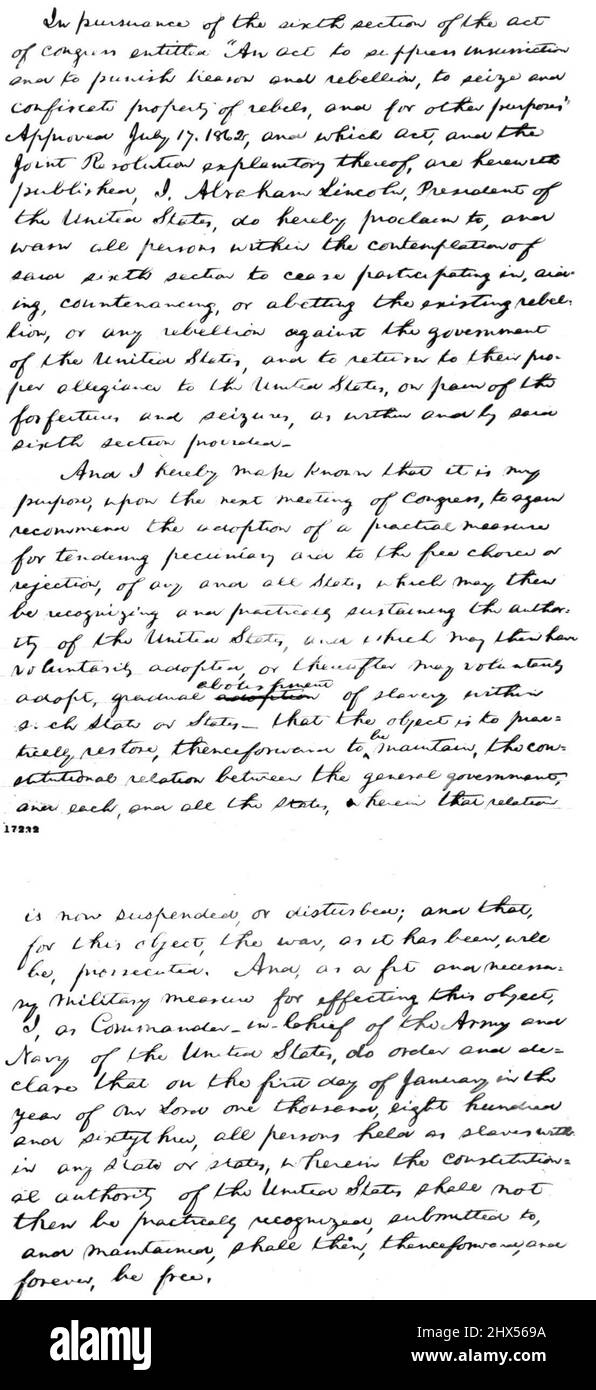 In pursuance of the sixth section of the act
of congress entitled "An act to suppress insurrection
and to punish treason and rebellion, to seize and
confiscate property of rebels, and for other purposes"
Approved July 17. 1862, and which act, and the
Joint Resolution explanatory thereof, are herewith
published, I, Abraham Lincoln, President of
the United States, do hereby proclaim to, and
warn all persons within the contemplation of
said sixth section to cease participating in, aid-
ing, countenancing, or abetting the existing rebel-
lion, or any rebellion against the government
of the United States, and to return to their pro-
per allegiance to the United States, on pain of the
forfeitures and seizures, as within and by said
sixth section provided—
And I hereby make known that it is my
purpose, upon the next meeting of Congress, to again
recommend the adoption of a practical measure
for tendering pecuniary aid to the free choice or
rejection, of any and all States, which may then
be recognizing and practically sustaining the author-
ity of the United States, and which may then have
voluntarily adopted, or thereafter may voluntarily
abolishment
adopt, gradual adoption of slavery within
such State or States— that the object is to prac-
tically restore, thenceforward to be maintain, the con-
stitutional relation between the general government,
and each, and all the states, wherein that relation
17232
is now suspended, or disturbed; and that,
for this object, the war, as it has been, will
be, prossecuted. And, as a fit and necessa-
ry military measure for effecting this object,
I, as Commander-in-Chief of the Army and
Navy of the United States, do order and de-
clare that on the first day of January in the
year of Our Lord one thousand, eight hundred
and sixtythree, all persons held as slaves with-
in any state or states, wherein the constitution-
al authority of the United States shall not
then be practically recognized, submitted to,
and maintained, shall then, thenceforward, and
forever, be free.
alamy
Image ID: 2HX569A
www.alamy.com